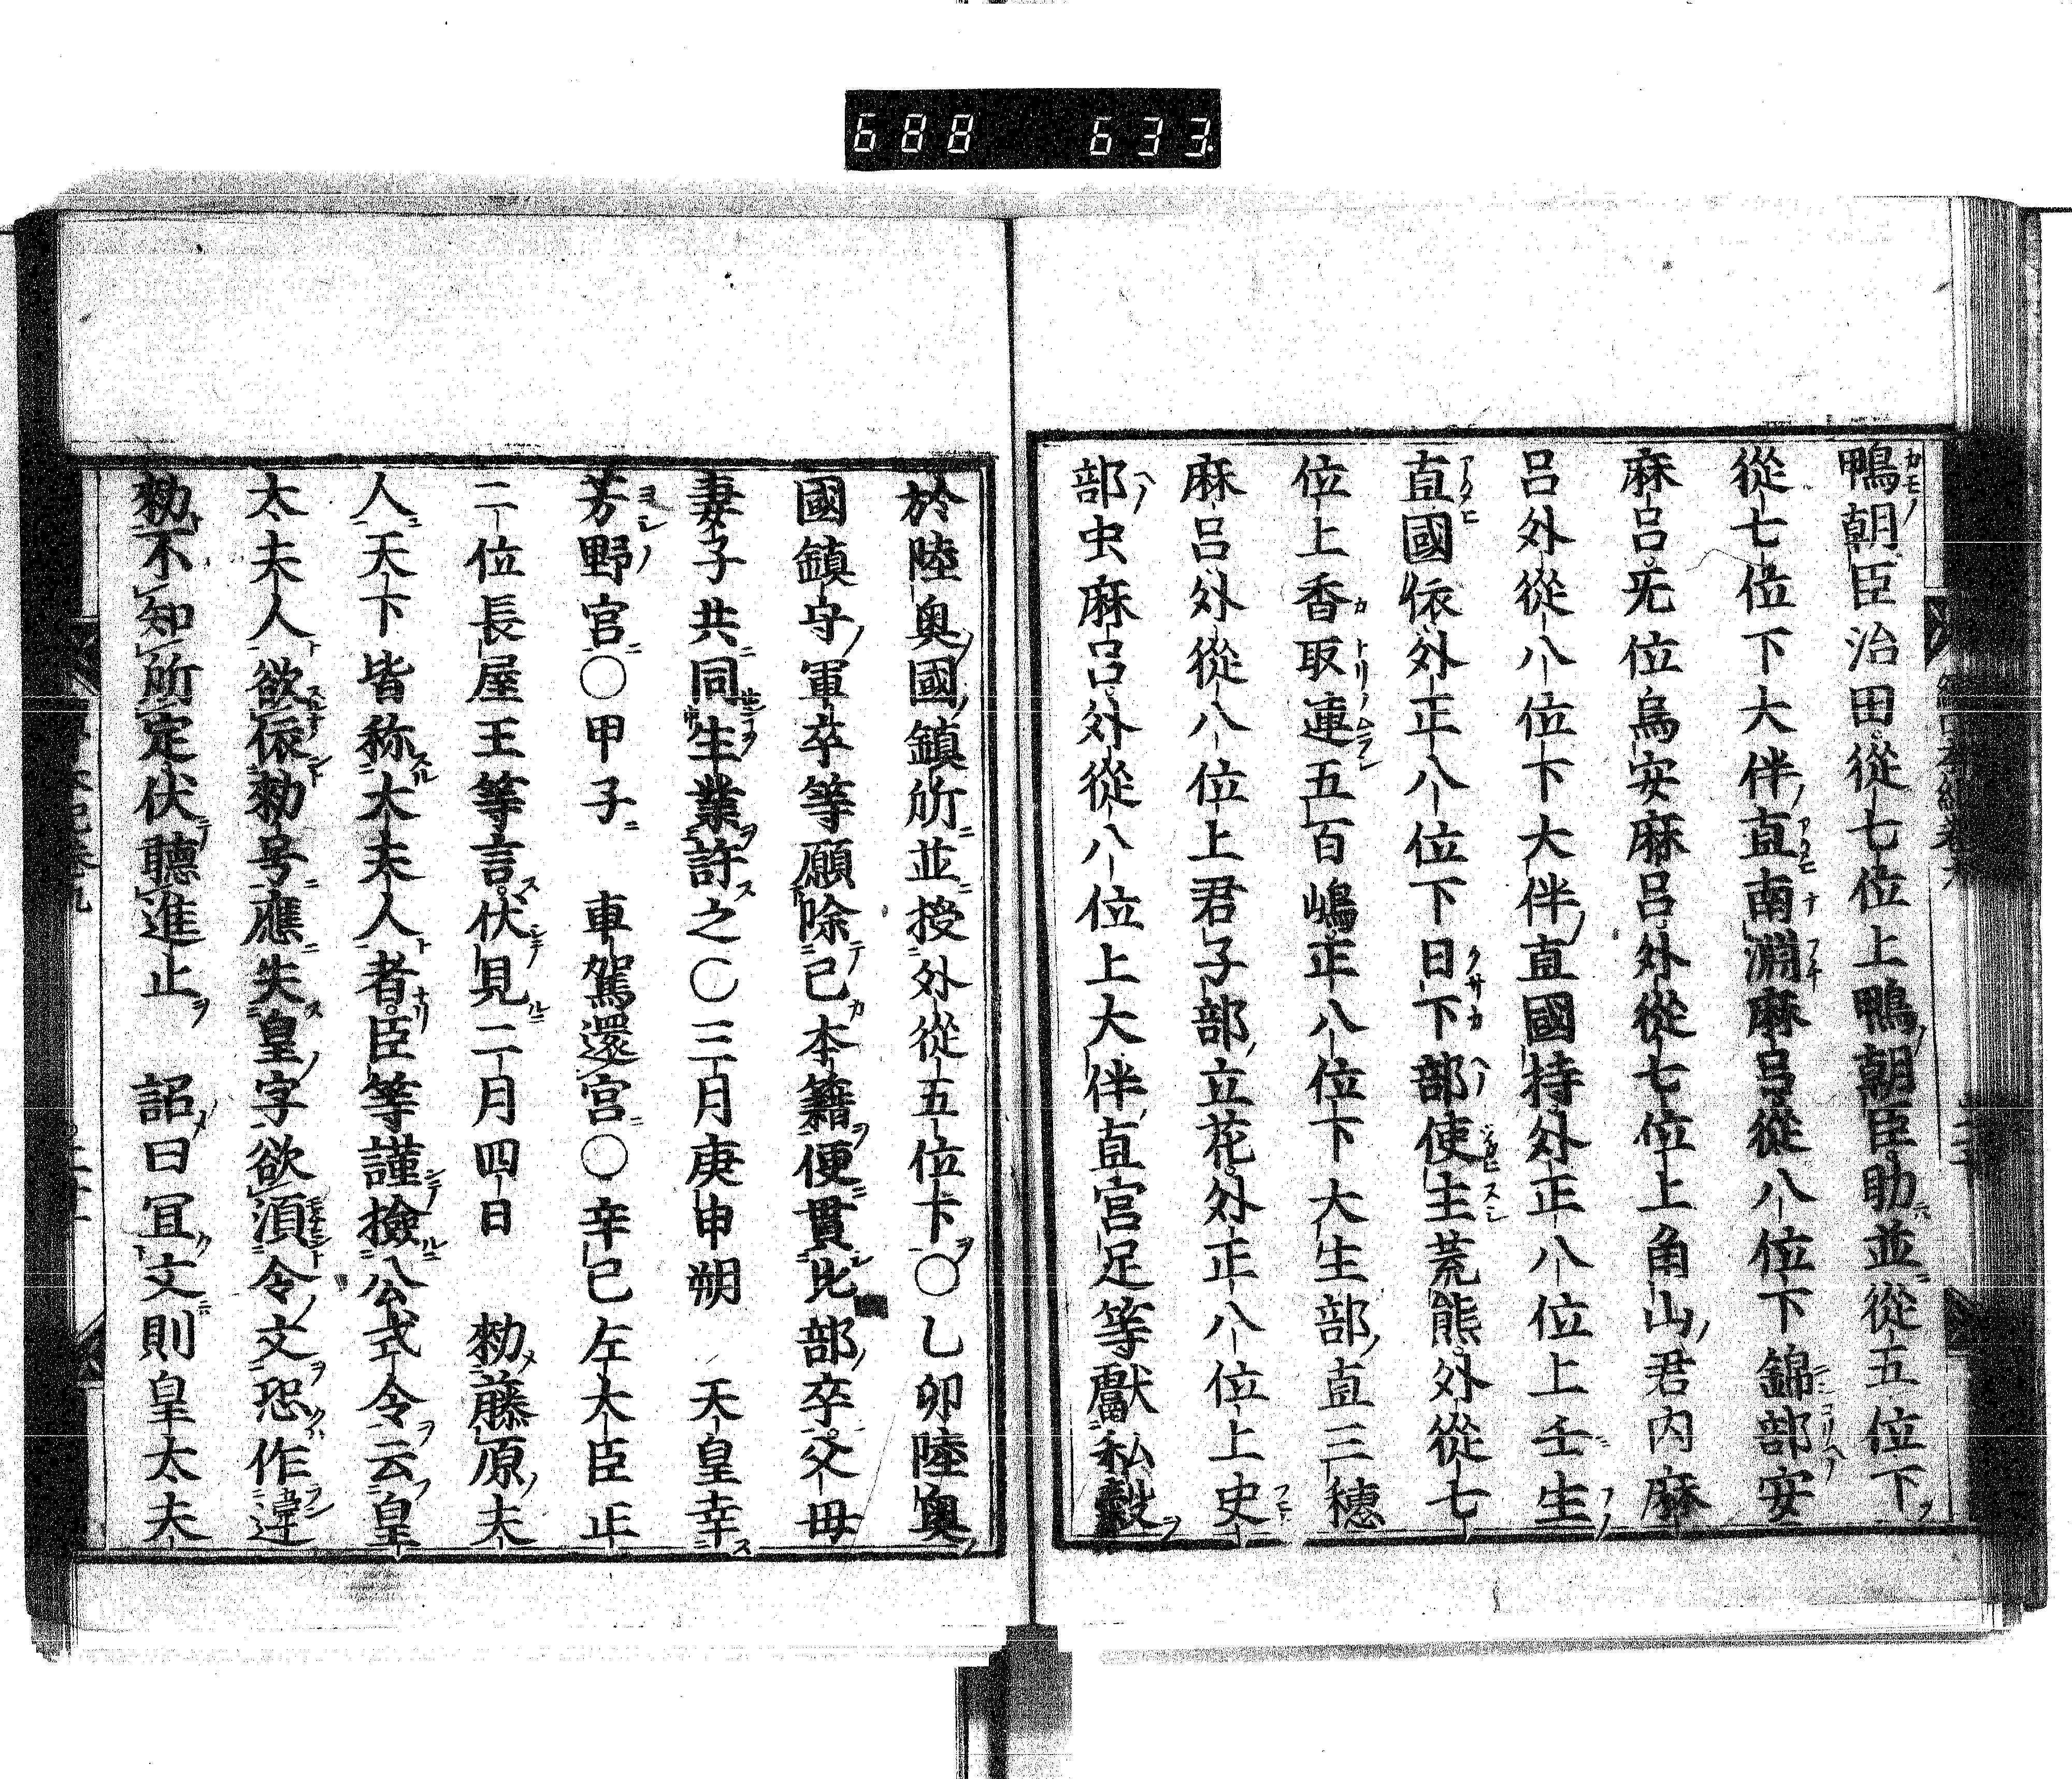 688 633
鴨朝臣治田從七位上鴨朝臣助並從五位下
從七位下大伴直南淵麻呂從八位下錦部安
麻呂无位烏安麻呂外從七位上角山君内麻
呂外從八位下大伴直國持外正八位上壬生
直國依外正八位下日下部使主荒熊外從七
位上香取連五百嶋正八位下大生部直三穗
麻呂外從八位上君子部立花外正八位上史
部虫麻呂外從八位上大伴直宮足等獻私穀
於陸奥國鎮所並授外從五位下〇乙卯陸奥
國鎮守軍卒等願除己本籍便貫比部卒父母
妻子共同生業許之〇三月庚申朔 天皇幸
芳野宮〇甲子 車駕還宮〇辛巳左大臣正
二位長屋王等言伏見二月四日 勅藤原夫
人天下皆称大夫人者臣等謹撿公式令云皇
太夫人欲依勅号應失皇字欲湏令文恐作違
勅不知所定伏聽進止 詔曰冝文則皇太夫